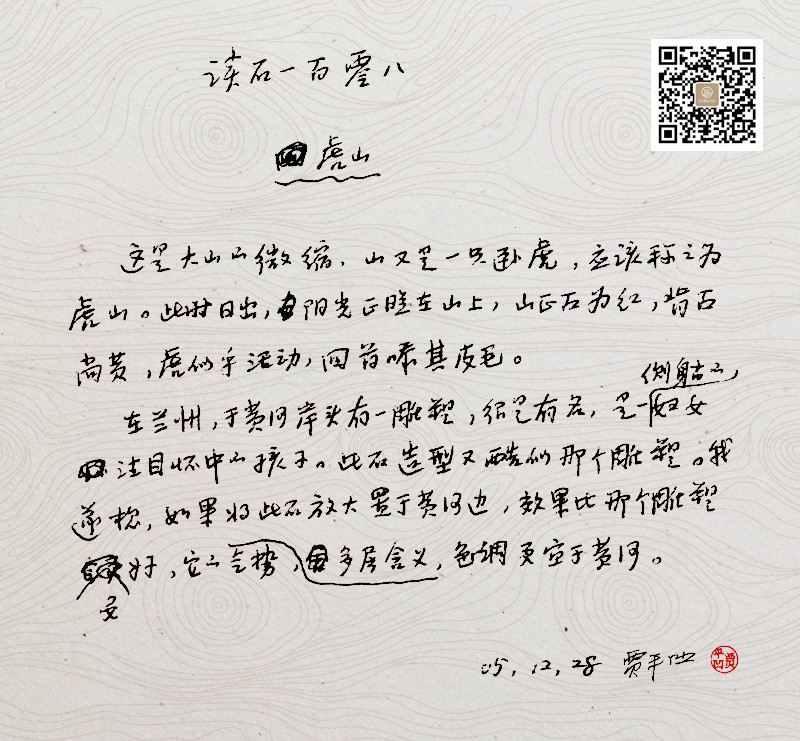 读石一百零八
虎山
这是大山的微缩,山又是一只卧虎,应该称之为
虎山。此时日出,阳光正晒在山上,山正面为红,背面
尚黄,虎似乎活动,回首舔其皮毛。
侧身的
在兰州,于黄河岸头有一雕塑,很是有名,是一妇女
注目怀中的孩子。此石造型又酷似那个雕塑。我
遂想,如果将此石放大置于黄河边,效果比那个雕塑
要好,它的气势,多层含义,色调更宜于黄河。
05.12.28 贾平凹
贾平凹